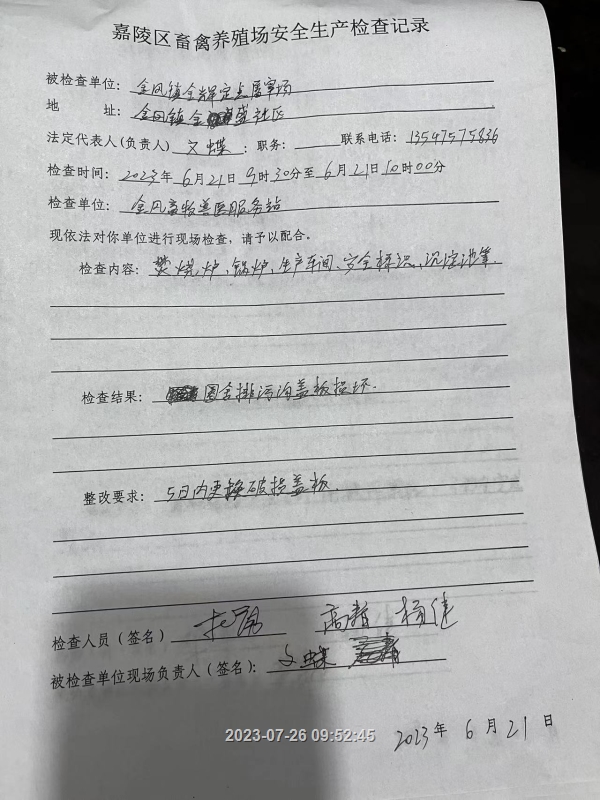 嘉陵区畜禽养殖场安全生产检查记录
被检查单位: 金凤镇金辉定点屠宰场
地 址: 金凤镇金盛社区
法定代表人(负责人) 文蝶 ; 职务: 联系电话: 13547575836
检查时间: 2023年6月21日9时30分至6月21日10时00分
检查单位: 金凤畜牧兽医服务站
现依法对你单位进行现场检查, 请予以配合。
检查内容: 焚烧炉、锅炉、生产车间、安全标识、沉淀池等.
检查结果: 圈舍排污沟盖板损坏.
整改要求: 5日内更换破损盖板.
检查人员(签名) 杨健
被检查单位现场负责人(签名): 文蝶
2023-07-26 09:52:45
2023年6月21日